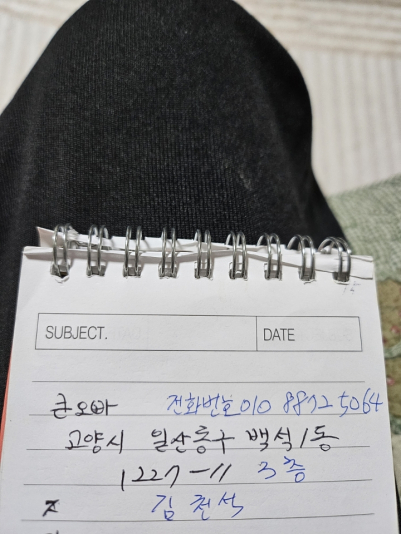 SUBJECT. DATE
큰오빠 전화번호 010 8872 5064
고양시 일산동구 백석1동
1227-11 3층
김천석